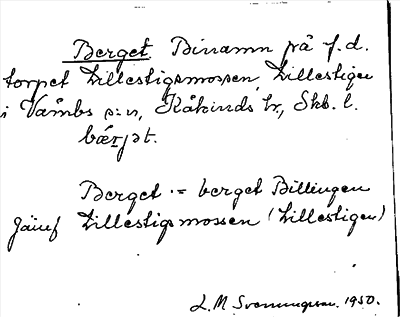 Berget. Binamn på f.d.
torpet Lillestigsmossen, Lillestigen
i Våmbs s:n, Kåkinds hr, Skb. l.
bær̥jət.
Berget := berget Billingen
Jämf Lillestigsmossen (Lillestigen)
L. M. Svenungsson. 1950.